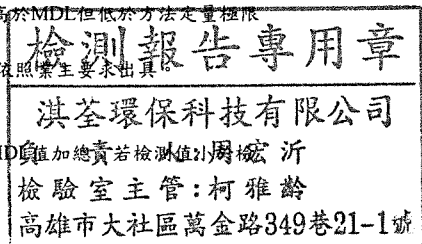 高於MDL但低於方法定量極限
檢測報告專用章
依照業主要求出具。
淇荃環保科技有限公司
MDL值加總，若檢測值小於檢
負責人：周宏沂
檢驗室主管：柯雅齡
高雄市大社區萬金路349巷21-1號